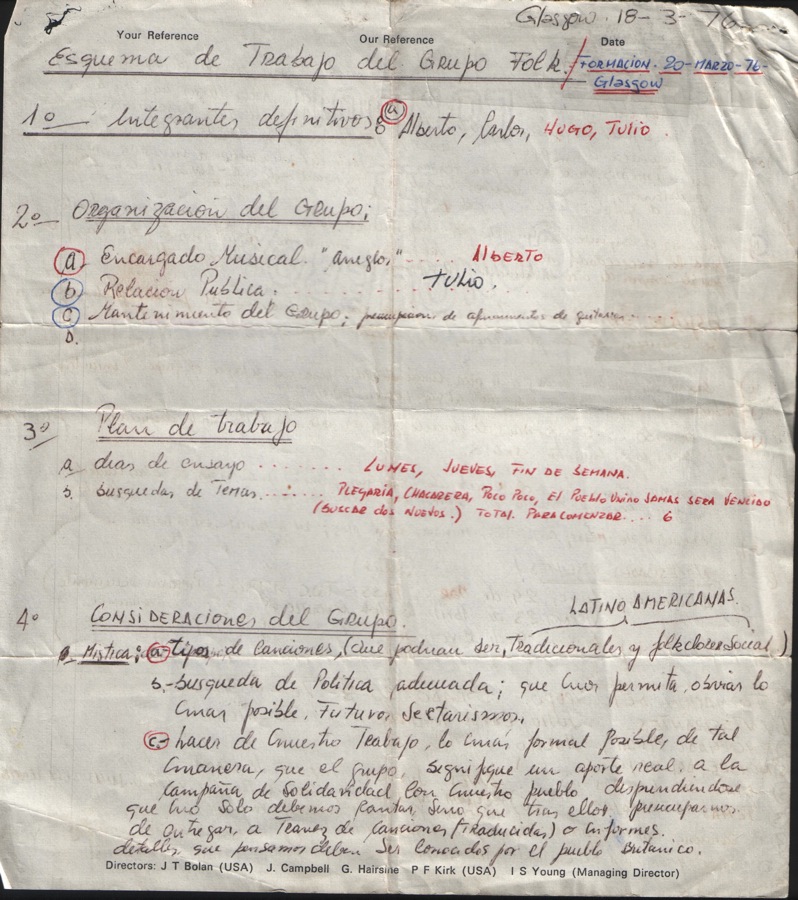 Glasgow. 18-3-76
Your Reference Our Reference Date
Esquema de Trabajo del Grupo Folk. / FORMACION. 20-MARZO-76-
Glasgow
1o— Integrantes definitivos: (a) Alberto, Carlos, HUGO, TULIO.
2o— Organización del Grupo;
(a) Encargado Musical. "arreglos" ..... ALBERTO
(b) Relación Pública. ........ TULIO.
(c) Mantenimiento del Grupo; preocupaciones de afinamientos de guitarras ......
D.
3o Plan de trabajo
a dias de ensayo ........ LUNES, JUEVES, FIN DE SEMANA.
b. busquedas de Temas........ PLEGARIA, CHACARERA, POCO POCO, EL PUEBLO UNIDO JAMAS SERA VENCIDO
(BUSCAR DOS NUEVOS.) TOTAL. PARA COMENZAR .... 6
4o CONSIDERACIONES del GRUPO.
LATINO AMERICANAS.
Mistica; (a-) tipos de canciones, (que podrian ser, Tradicionales y folklore Social)
b.- busqueda de Politica adecuada; que nos permita, obviar lo
mas posible, Futuros Sectarismos.
(c-) hacer de Nuestro Trabajo, lo más formal Posible, de tal
manera, que el grupo, signifique un aporte real. a la
Campaña de Solidaridad con nuestro pueblo desprendiendose
que no Solo debemos Cantar, sino que tras ello, preocuparnos
de entregar, a Travez de Canciones (traducidas) o informes.
detalles que pensamos deben Ser Conocidos por el pueblo Británico.
Directors: J T Bolan (USA) J. Campbell G. Hairsine P F Kirk (USA) I S Young (Managing Director)